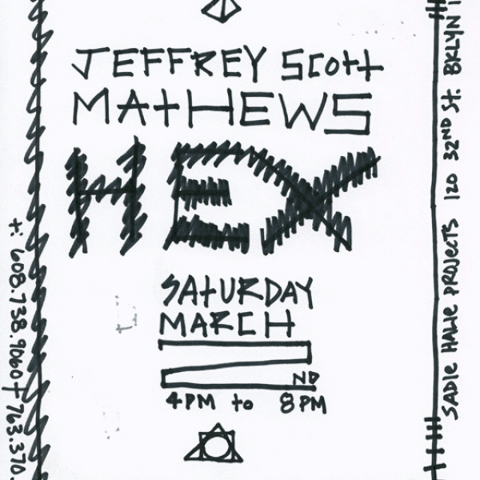 JEFFREY Scott
MAtHEWS
HEX
SAtURDAY
MARCH
2ND
4PM to 8PM
t: 608.738.9060 + 763.370.
SADIE HALIE PROJECTS 120 32ND St. BKLYN